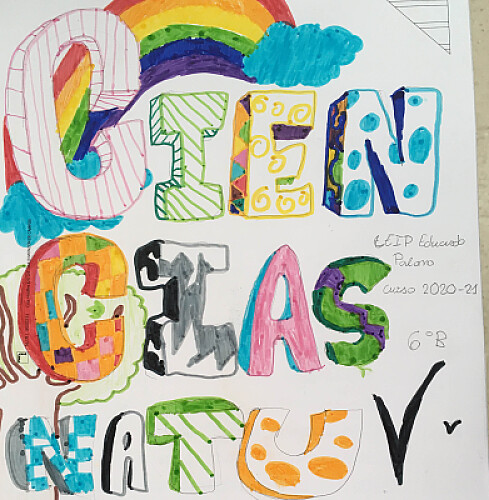 CIEN
CIAS
CEIP Eduardo
Palomo
curso 2020-21
6ºB
NATU